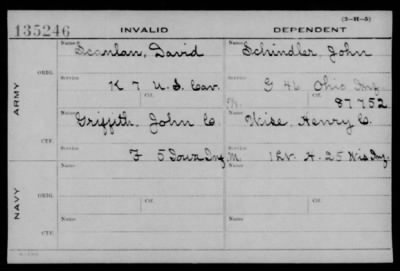 (3-H-5)
135246
INVALID
DEPENDENT
ARMY
ORIG.
Name
Scanlan, David
Service
K 7 U.S. Cav.
Ctf.
Name
Schindler, John
Service
G 46 Ohio Inf.
Ctf.
87752
CTF.
Name
Griffith, John C.
Service
F 5 Iowa Inf.
Name
Wise, Henry C.
M.
Service
1 Lt. H. 25 Wis. Inf.
NAVY
ORIG.
Name
Ctf.
Name
Ctf.
CTF.
Name
Name